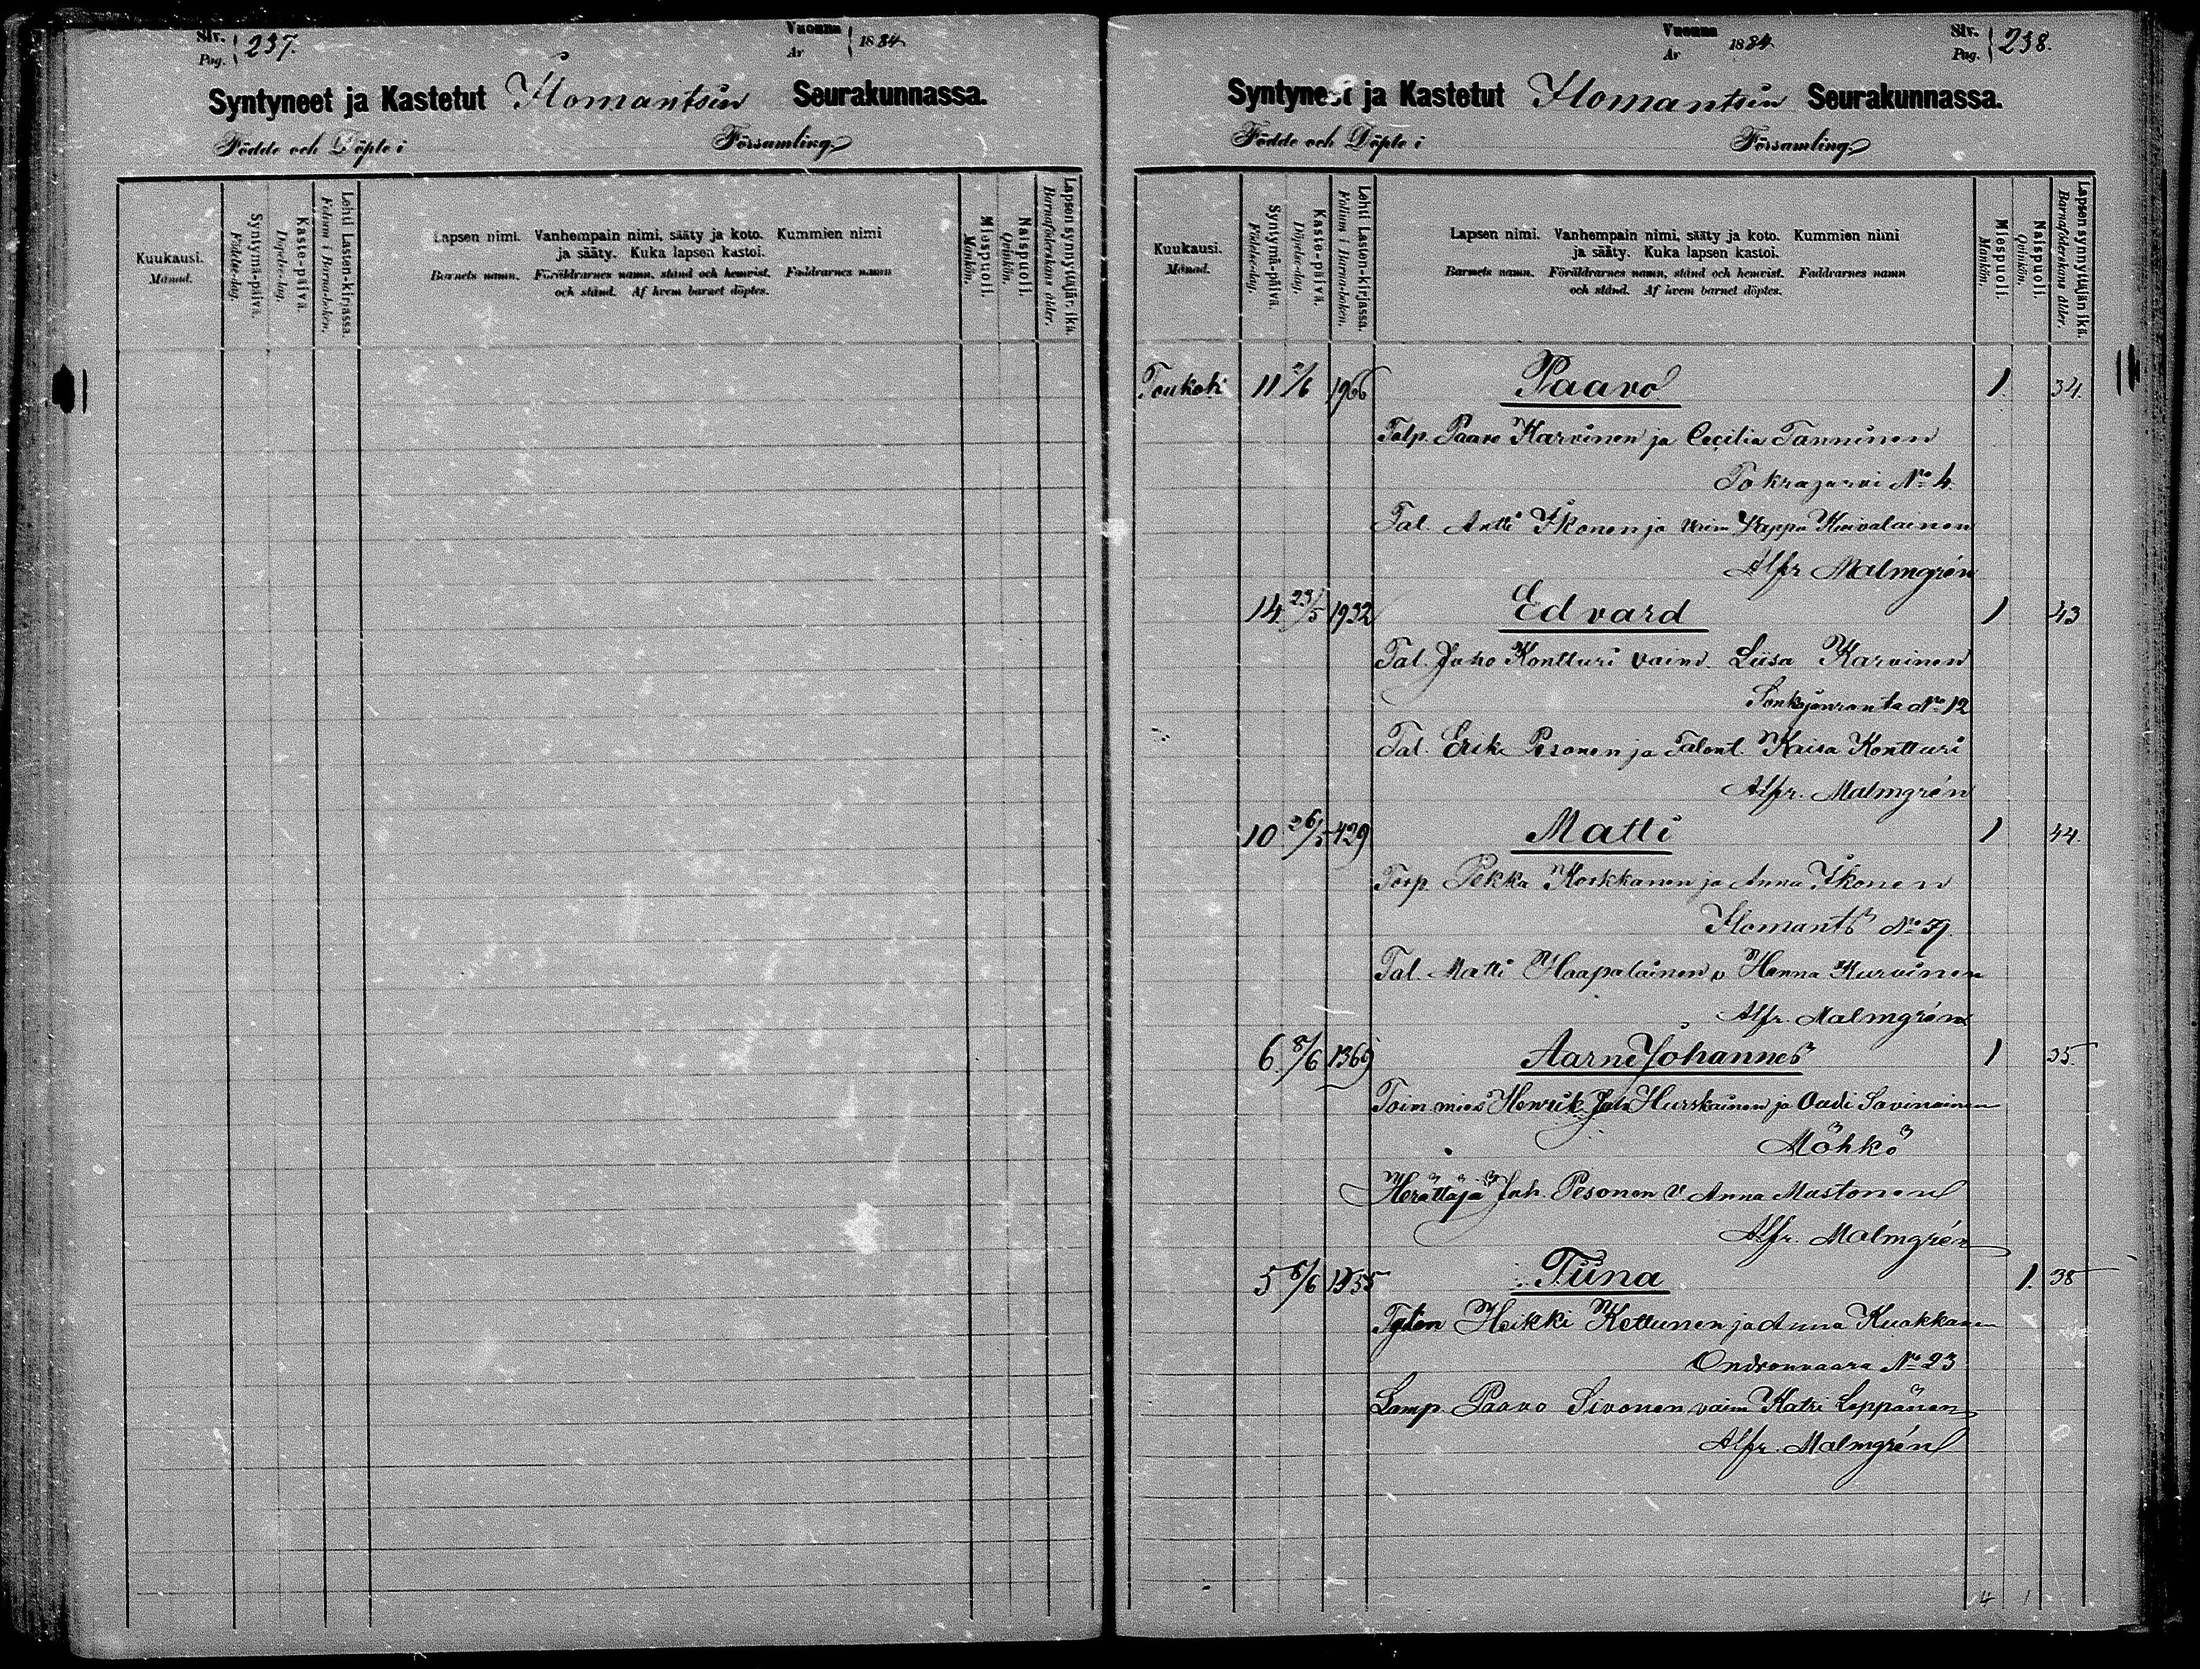 Siv.
Pag. 237.
Vuonna
År 1884
Syntyneet ja Kastetut Ilomantsin Seurakunnassa.
Födde och Döpte i Församling.
Kuukausi.
Månad.
Syntymä-päivä.
Födelse-dag.
Kaste-päivä.
Döpelse-dag.
Lehti Lasten-kirjassa.
Folium i Barna-boken.
Lapsen nimi. Vanhempain nimi, sääty ja koto. Kummien nimi
ja sääty. Kuka lapsen kastoi.
Barnets namn. Föräldrarnes namn, stånd och hemvist. Faddrarnes namn
och stånd. Af hvem barnet döptes.
Miespuoli.
Mankön.
Naispuoli.
Qvinkön.
Lapsen synnyttäjän ikä.
Barnaföderskans ålder.
Vuonna
År 1884
Siv.
Pag. 238.
Syntyneet ja Kastetut Ilomantsin Seurakunnassa.
Födde och Döpte i Församling.
Kuukausi.
Månad.
Syntymä-päivä.
Födelse-dag.
Kaste-päivä.
Döpelse-dag.
Lehti Lasten-kirjassa.
Folium i Barna-boken.
Lapsen nimi. Vanhempain nimi, sääty ja koto. Kummien nimi
ja sääty. Kuka lapsen kastoi.
Barnets namn. Föräldrarnes namn, stånd och hemvist. Faddrarnes namn
och stånd. Af hvem barnet döptes.
Miespuoli.
Mankön.
Naispuoli.
Qvinkön.
Lapsen synnyttäjän ikä.
Barnaföderskans ålder.
Toukok 11 1966 Paavo 1. 34.
Talp. Paavo Karvinen ja Cecilia Tanninen
Tokrajarvi No 4.
Tal. Antti Ikonen ja vaim Wappu Hirvalainen
Alfr Malmgrén
14 23/5 1932 Edvard 1 43
Tal. Juho Kontturi vaim. Liisa Karvinen
Sonkajanranta No 12
Tal. Erik Pesonen ja Talont. Kaisa Kontturi
Alfr. Malmgrén
10 26/5 429 Matti 1 44.
Torp Pekka Korkkanen ja Anna Ikonen
Ilomants No 57.
Tal. Matti Haapalainen v Hanna Kurvinen
Alfr. Malmgrén
6. 8/6 1369 Aarne Johannes 1 35.
Toim. mies Henrik Joh Hurskainen ja Oadi Savinainen
Möhkö
Herättäjä Joh. Pesonen v Anna Mustonen
Alfr. Malmgrén
5 8/6 1355 Tiina 1. 38
Heikki Kettunen ja Anna Kuokkanen
Ondronvaara No 23
Lamp. Paavo Sivonen vaim Katri Leppänen
Alfr. Malmgrén
4 1